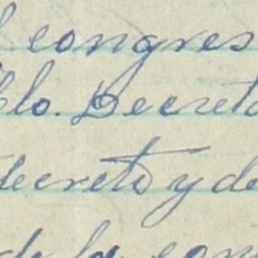 congres
blo. Decreto
decreto y de
de la con